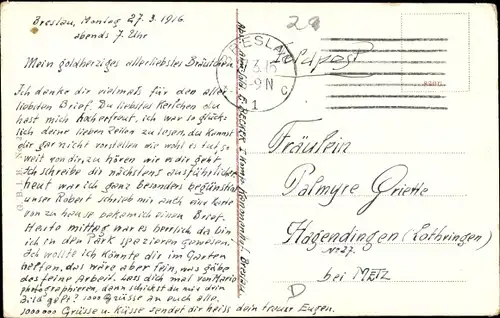 Breslau, Montag 27.3.1916.
abends 7. Uhr
Mein goldherziges allerliebstes Bräutchen.
Ich danke dir vielmals für den aller-
liebsten Brief. Du liebstes Kerlchen du
hast mich hoch erfreut. ich war so glück-
lich deine lieben Zeilen zu lesen, du kannst
dir gar nicht vorstellen wie wohl es tut, so
weit von dir, zu hören wie es dir geht.
Ich schreibe dir nächstens ausführlicher
heut war ich ganz besonders begünstigt
unser Robert schrieb mir auch eine Karte
von zu hause bekam ich einen Brief.
Heute mittag war es herrlich da bin
ich in den Park spazieren gewesen.
Ich wollte ich könnte dir im Garten
helfen, das wäre aber fein, was gäbe
das feine Arbeit, lass dich mal von Mario
photographieren, dann schickst du mir dein
Bild gelt? 1000 Grüsse an euch alle.
1000000 Grüsse u. Küsse sendet dir heiss dein treuer Eugen.
BRESLAU
1
c
Feldpost
Fräulein
Palmyre Grielle
Hagendingen (Lothringen)
No 27.
bei METZ
D